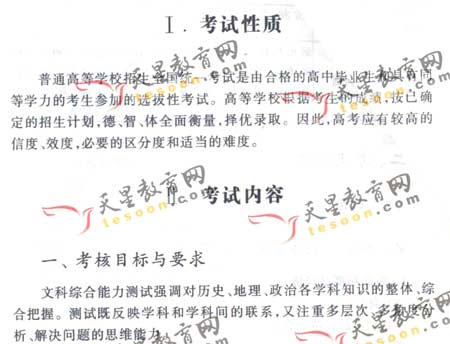 Ⅰ. 考试性质
普通高等学校招生全国统一考试是由合格的高中毕业生和具有同
等学力的考生参加的选拔性考试。高等学校根据考生的成绩,按已确
定的招生计划,德、智、体全面衡量,择优录取。因此,高考应有较高的
信度、效度,必要的区分度和适当的难度。
Ⅱ 考试内容
一、考核目标与要求
文科综合能力测试强调对历史、地理、政治各学科知识的整体、综
合把握。测试既反映学科和学科间的联系,又注重多层次、多角度分
析、解决问题的思维能力
天星教育网
tesoon.com
天星教育网
tesoon.com
天星教育网
tesoon.com
天星教育网
tesoon.com
天星教育网
天星教育网